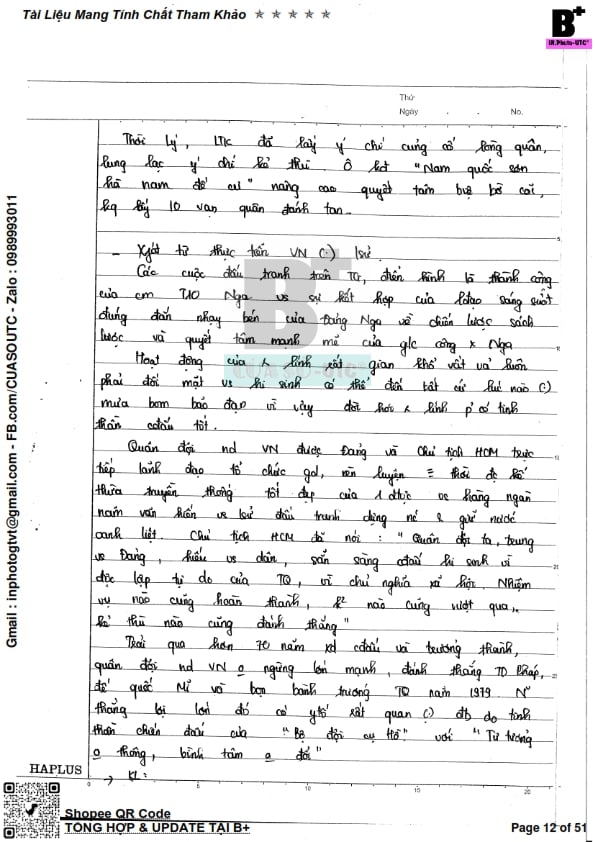 Tài Liệu Mang Tính Chất Tham Khảo ★ ★ ★ ★ ★
B+
IN.Photo-UTC
Thứ
Ngày . . No.
Thời Lý, LTK đã lấy ý chí củng cố lòng quân,
lung lạc ý chí kẻ thù. Ô "Nam quốc sơn
hà nam đế cư" nâng cao quyết tâm bờ cõi,
kq 10 vạn quân đánh tan.
- Xphát từ thực tiễn VN (:) lsử.
Các cuộc đấu tranh trên TG, điển hình là thành công
của cm T10 Nga vs sự kết hợp của lđạo sáng suốt
đúng đắn nhạy bén của Đảng Nga về chiến lược sách
lược và quyết tâm mạnh mẽ của glc công x Nga
Hoạt động của lính rất gian khổ vất vả luôn
phải đối mặt vs hi sinh có thể đến bất cứ lúc nào (:)
mưa bom bão đạn vì vậy đòi hỏi lính p' có tinh
thần cđấu tốt.
Quân đội nd VN được Đảng và Chủ tịch HCM trực
tiếp lãnh đạo tổ chức gd, rèn luyện ≡ thời kế
thừa truyền thống tốt đẹp của 1 dtộc vs hàng ngàn
năm văn hiến vs lsử đấu tranh dựng nc & giữ nước
oanh liệt. Chủ tịch HCM đã nói: "Quân đội ta, trung
vs Đảng, hiếu vs dân, sẵn sàng cđấu hi sinh vì
độc lập tự do của TQ, vì chủ nghĩa xã hội. Nhiệm
vụ nào cũng hoàn thành, k² nào cũng vượt qua,
kẻ thù nào cũng đánh thắng"
Trải qua hơn 70 năm xd cđấu và trưởng thành,
quân đội nd VN o ngừng lớn mạnh, đánh thắng TD Pháp,
đế quốc Mĩ và bọn bành trướng TQ năm 1979. N~
thắng lợi lớn đó có ytố rất quan (:) đb do tinh
thần chiến đấu của "Bộ đội cụ Hồ" với "Tư tưởng
o thông, bình tâm o đổi"
→ KL:
CUASO-UTC
Gmail : inphotogtvt@gmail.com - FB.com/CUASOUTC - Zalo : 0989993011
HAPLUS
0 5 10 15 20
Shopee QR Code
TỔNG HỢP & UPDATE TẠI B+
Page 12 of 51